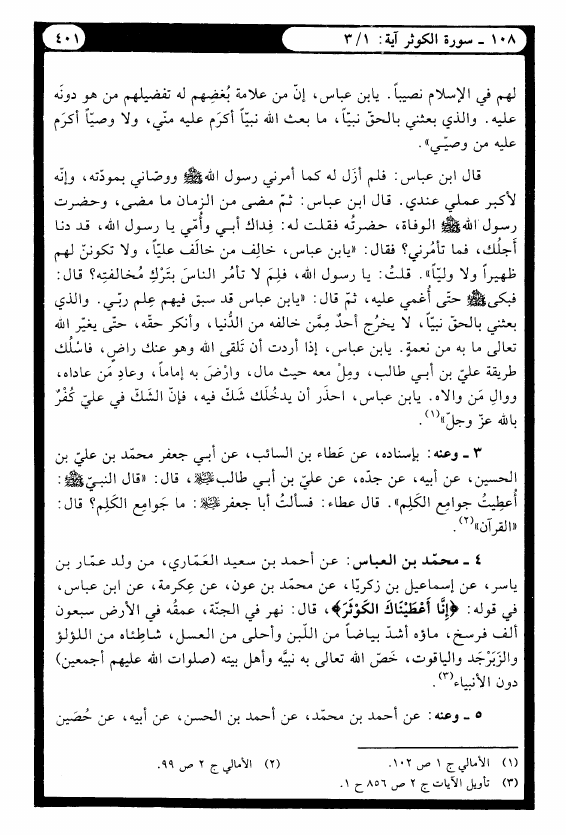 ١٠٨ ـ سورة الكوثر آية: ١/ ٣
٤٠١
لهم في الإسلام نصيباً. يابن عباس، إنّ من علامة بُغضِهم له تفضيلهم من هو دونَه
عليه. والذي بعثني بالحقّ نبيّاً، ما بعث الله نبيّاً أكرَم عليه منّي، ولا وصيّاً أكرَم
عليه من وصيّي».
قال ابن عباس: فلم أزَل له كما أمرني رسول الله ﷺ ووصّاني بمودّته، وإنّه
لأكبر عملي عندي. قال ابن عباس: ثمّ مضى من الزمان ما مضى، وحضرت
رسول الله ﷺ الوفاة، حضرتُه فقلت له: فِداك أبي وأُمّي يا رسول الله، قد دنا
أجلُك، فما تأمُرني؟ فقال: «يابن عباس، خالِف من خالَف عليّاً، ولا تكوننّ لهم
ظهيراً ولا وليّاً». قلتُ: يا رسول الله، فلِمَ لا تأمُر الناسَ بتَركِ مُخالفتِه؟ قال:
فبكى ﷺ حتّى أُغمي عليه، ثمّ قال: «يابن عباس قد سبق فيهم عِلم ربّي. والذي
بعثني بالحقّ نبيّاً، لا يخرُج أحدٌ مِمَّن خالفه من الدُّنيا، وأنكر حقّه، حتّى يغيّر الله
تعالى ما به من نعمةٍ. يابن عباس، إذا أردت أن تَلقى الله وهو عنك راضٍ، فاسْلُك
طريقة عليّ بن أبي طالب، ومِلْ معه حيث مال، وارْضَ به إماماً، وعادِ مَن عاداه،
ووالِ مَن والاه. يابن عباس، احذَر أن يدخُلَك شَكّ فيه، فإنّ الشَكّ في عليّ كُفْرٌ
بالله عزّ وجلّ»(١).
٣ ـ وعنه: بإسناده، عن عَطاء بن السائب، عن أبي جعفر محمّد بن عليّ بن
الحسين، عن أبيه، عن جدّه، عن عليّ بن أبي طالب ﷺ، قال: «قال النبيّ ﷺ:
أُعطِيتُ جوامِع الكَلِم». قال عطاء: فسألتُ أبا جعفر ﷺ: ما جَوامِع الكَلِم؟ قال:
«القرآن»(٢).
٤ ـ محمّد بن العباس: عن أحمد بن سعيد العَمّاري، من ولد عمّار بن
ياسر، عن إسماعيل بن زكريّا، عن محمّد بن عون، عن عِكرمة، عن ابن عباس،
في قوله: ﴿إِنَّا أَعْطَيْنَاكَ الْكَوْثَرَ﴾، قال: نهر في الجنّة، عمقُه في الأرض سبعون
ألف فرسخ، ماؤه أشدّ بياضاً من اللَّبن وأحلى من العسل، شاطِئاه من اللؤلؤ
والزَبَرْجَد والياقوت، خَصّ الله تعالى به نبيّه وأهل بيته (صلوات الله عليهم أجمعين)
دون الأنبياء(٣).
٥ ـ وعنه: عن أحمد بن محمّد، عن أحمد بن الحسن، عن أبيه، عن حُصَين
(١) الأمالي ج ١ ص ١٠٢.
(٢) الأمالي ج ٢ ص ٩٩.
(٣) تأويل الآيات ج ٢ ص ٨٥٦ ح ١.